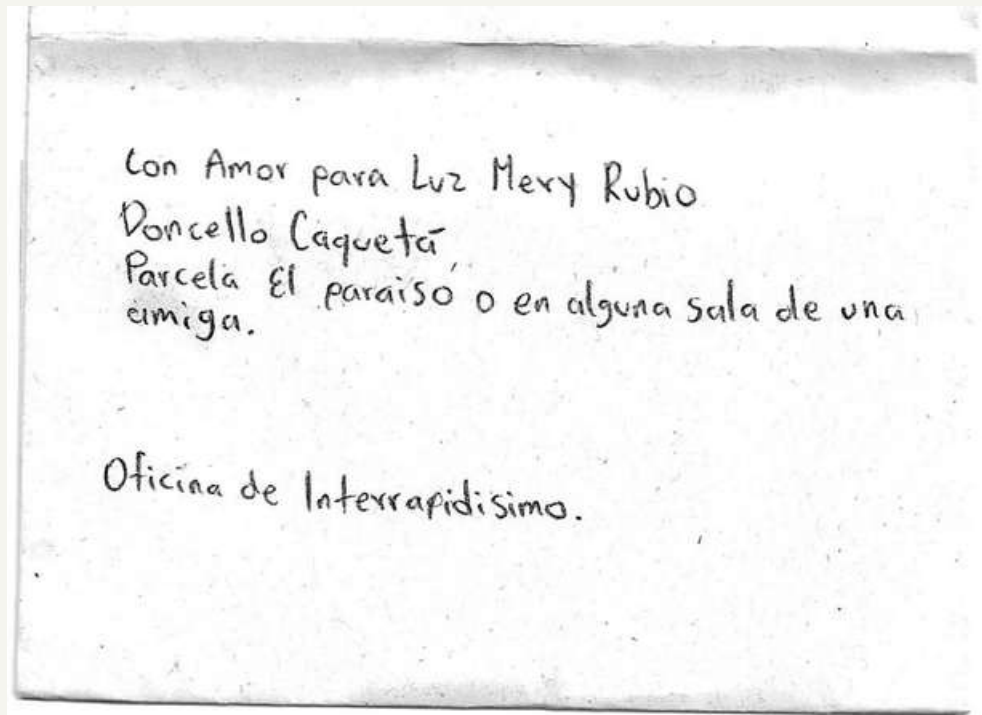 Con Amor para Luz Mery Rubio
Doncello Caquetá
Parcela El paraiso o en alguna sala de una
amiga.
Oficina de Interrapidisimo.